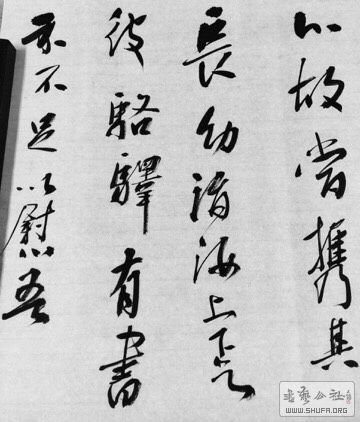 故當攜其
長幼詣海上下
彼駱驛有書
亦不足以慰吾
書藝公社
WWW.SHUFA.ORG